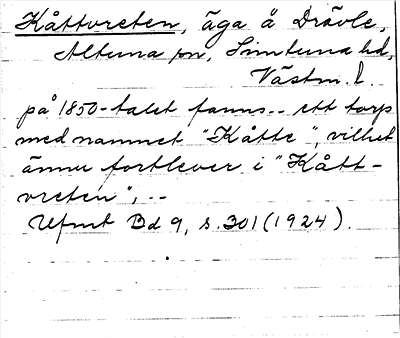 Kåttvreten, äga å Drävle,
Altuna sn, Simtuna hd,
Västm. l.
på 1850-talet fanns.. ett torp
med namnet "Kåtte", vilket
ännu fortlever i "Kått-
vreten", --
Upmt Bd 9, s. 301 (1924).